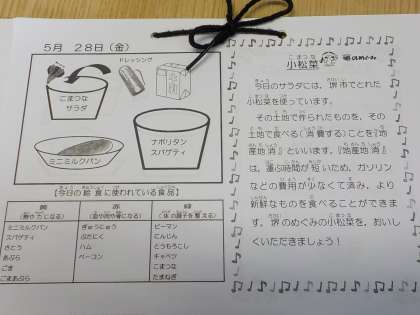 5月 28日(金)
ドレッシング
こまつな
サラダ
ナポリタン
スパゲティ
ミニミルクパン
【今日の給食に使われている食品】
黄 赤 緑
(熱や力になる) (血や肉や骨になる) (体の調子を整える)
ミニミルクパン ぎゅうにゅう ピーマン
スパゲティ ぶたにく にんじん
さとう ハム とうもろこし
あぶら ベーコン キャベツ
ごま こまつな
ごまあぶら たまねぎ
小松菜
こまつな
堺のめぐみ
今日のサラダには、堺市でとれた
小松菜を使っています。
その土地で作られたものを、その
土地で食べる(消費する)ことを『地
産地消』といいます。『地産地消』
は、運ぶ時間が短いため、ガソリン
などの費用が少なくて済み、より
新鮮なものを食べることができま
す。堺のめぐみの小松菜を、おいし
くいただきましょう!